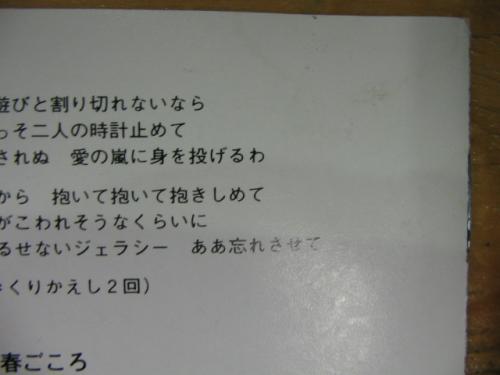 遊びと割り切れないなら
っそ二人の時計止めて
されぬ　愛の嵐に身を投げるわ
から　抱いて抱いて抱きしめて
がこわれそうなくらいに
るせないジェラシー　ああ忘れさせて
くりかえし2回）
春ごころ